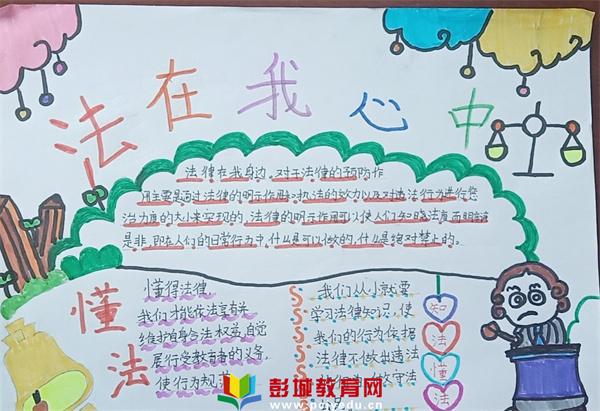 法在我心中
法律在我身边，对于法律的预防作
用主要是通过法律的明示作用和执法的效力以及对违法行为进行惩
治力度的大小来实现的，法律的明示作用可以使人们知晓法律而明辨
是非，即在人们的日常行为中，什么是可以做的，什么是绝对禁止的。
懂法
懂得法律
我们才能依法享有并
维护自身合法权益，自觉
履行受教育者的义务，
使行为规
我们从小就要
学习法律知识，使
我们的行为依据
法律不做出违法
做守法
知
法
懂
法
彭城教育网
www.pcjyedu.cn